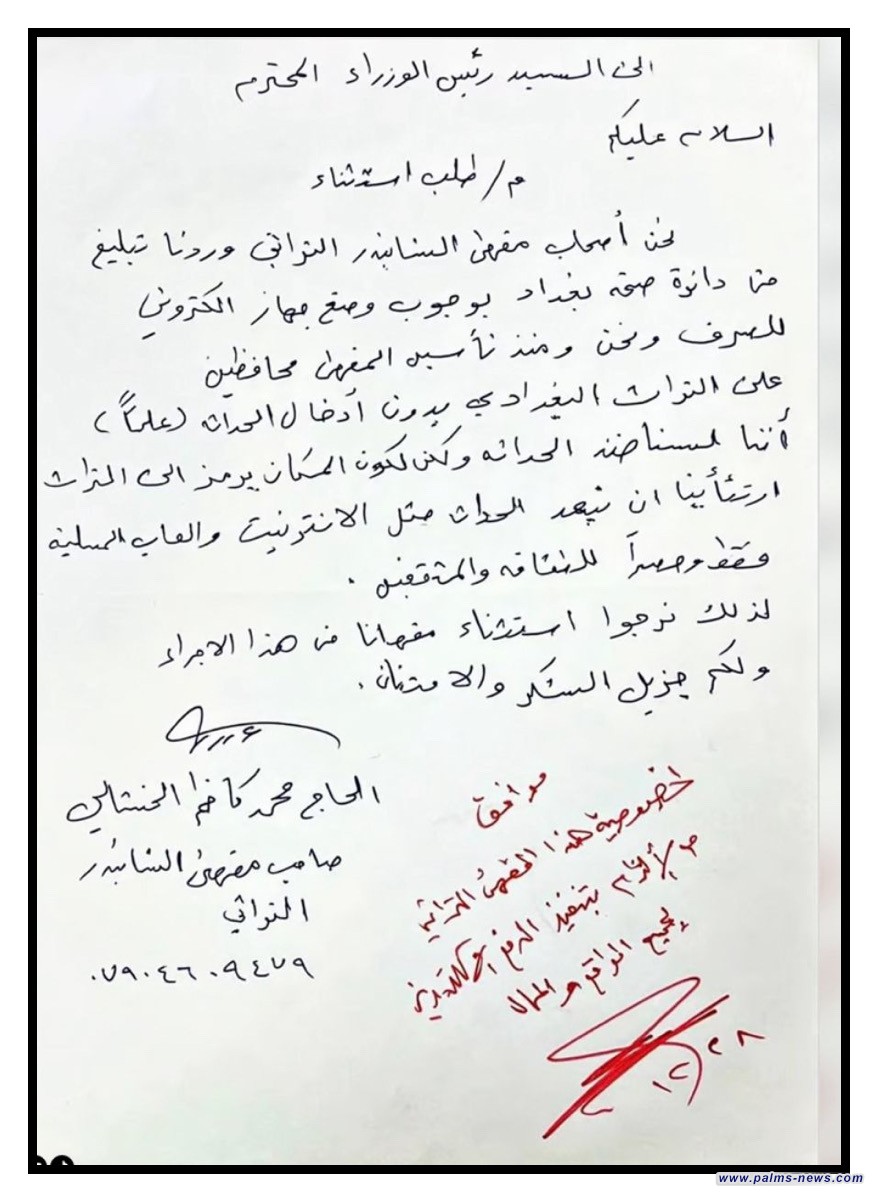 الى السيد رئيس الوزراء المحترم
السلام عليكم
م/ طلب استثناء
نحن أصحاب مقهى الشابندر التراثي وردنا تبليغ
من دائرة صحة بغداد بوجوب وضع جهاز الكتروني
للصرف ونحن ومنذ تأسيس المقهى محافظين
على التراث البغدادي بدون أدخال الحداثه (علماً)
أننا لسنا ضد الحداثه ولكن لكون المكان يرمز الى التراث
ارتئأينا ان نبعد الحداثه مثل الانترنيت والعاب المسلية
فقط وحصراً للثقافه والمثقفين .
لذلك نرجوا استثناء مقهانا من هذا الاجراء
ولكم جزيل الشكر والامتنان .
الحاج محمد كاظم الخشالي
صاحب مقهى الشابندر
التراثي
٠٧٩٠٤٦٠٩٤٧٩
موافق
لخصوصية هذا المقهى التراثي
مع الألتزام بتنفيذ الدفع الالكتروني
بجميع المواقع والمحال
١٢/٢٨
www.palms-news.com